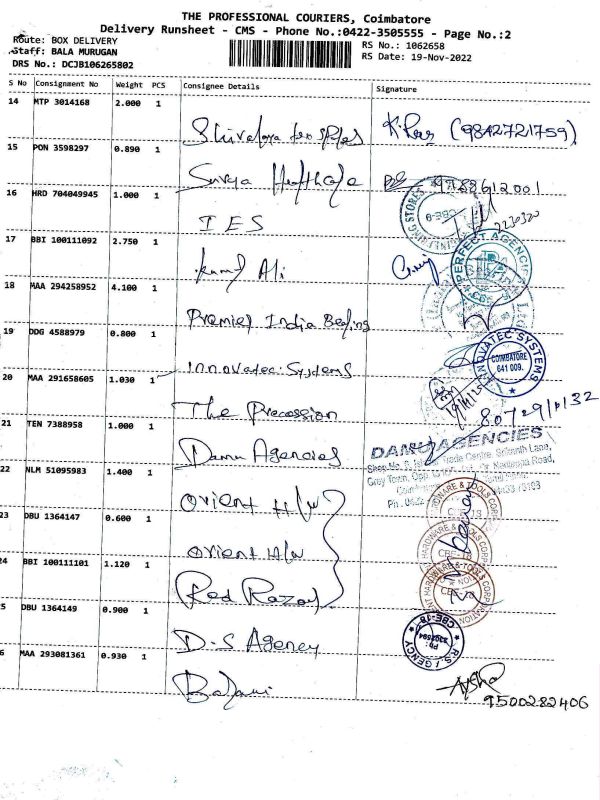 THE PROFESSIONAL COURIERS, Coimbatore
Delivery Runsheet - CMS - Phone No.:0422-3505555 - Page No.:2
Route: BOX DELIVERY
Staff: BALA MURUGAN
DRS No.: DCJB106265802
RS No.: 1062658
RS Date: 19-Nov-2022
S No Consignment No Weight PCS Consignee Details Signature
14 MTP 3014168 2.000 1
(9842721759)
15 PON 3598297 0.890 1
Surya Healthcare 9788612001
16 HRD 704049945 1.000 1
IES
2230320
17 BBI 100111092 2.750 1
Kamal Ali
PERFECT AGENCIES
18 MAA 294258952 4.100 1
Premier India Bearing
19 DDG 4588979 0.800 1
Innovatec Systems
INNOVATEC SYSTEMS
COIMBATORE
641 009.
20 MAA 291658605 1.030 1
The Precession
21 TEN 7388958 1.000 1
Damu Agencies
DAMU AGENCIES
22 NLM 51095983 1.400 1
Orient H/w
HARDWARE & TOOLS CORPORATION
23 DBU 1364147 0.600 1
Orient H/w
HARDWARE & TOOLS CORPORATION
CBE-18
24 BBI 100111101 1.120 1
Red Razor
HARDWARE & TOOLS CORPORATION
5 DBU 1364149 0.900 1
D.S Agency
CBE-18
6 MAA 293081361 0.930 1
Balani
9500282406